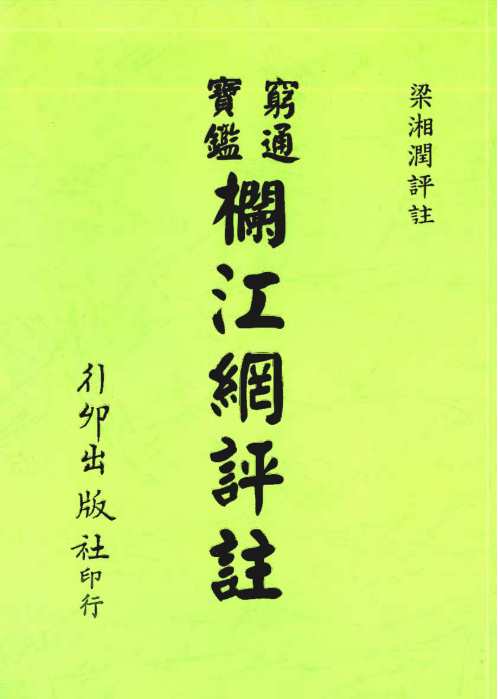 梁湘潤評註
窮通
寶鑑
欄江網評註
行卯出版社印行